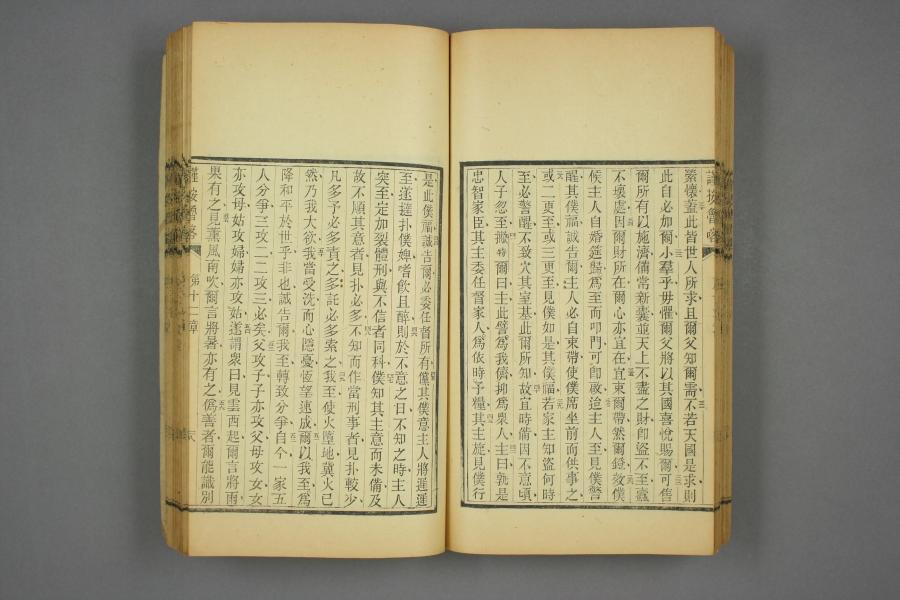 縈懷蓋此皆世人所求且爾父知爾需不若天國是求則
此自必加爾小羣乎毋懼爾父將以其國喜悅賜爾可售
爾所有以施濟備常新囊並天上不盡之財卽盜不至蠹
不壞處因爾財所在爾心亦宜在宜束爾帶然爾燈效僕
候主人自婚筵歸爲至而叩門可卽啟迨主人至見僕警
醒其僕福誠吿爾主人必自束帶使僕席坐前而供事之
或二更至或三更至見僕如是其僕福若家主知盜何時
至必警醒不致穴其室基此爾所知故宜時備因不意頃
人子忽至撥爾曰主此譬爲我儕抑爲衆人主曰孰是
忠智家臣其主委任督家人爲依時予糧其主旋見僕行
是此僕福誠吿爾必委任督所有儻其僕意主人將遲遲
至遂撻扑僕婢嗜飲且醉則於不意之日不知之時主人
突至定加裂體刑與不信者同科僕知其主意而未備及
故不順其意者見扑必多不知而作當刑事者見扑較少
凡多予必多責之多託必多索之我至使火墮地冀火已
然乃我大欲我當受洗而心隱憂恆望速成爾以我至爲
降和平於世乎非也誠吿爾我至轉致分爭自今一家五
人分爭三攻二二攻三必矣父攻子子亦攻父母攻女女
亦攻母姑攻婦婦亦攻姑遂謂衆曰見雲西起爾言將雨
果有之見薰風南吹爾言將暑亦有之僞善者爾能識別
第十二章